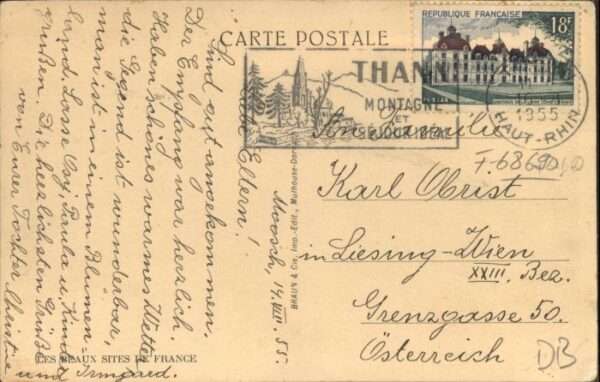 CARTE POSTALE
REPUBLIQUE FRANÇAISE
18F
THANN
MONTAGNE
ET
1955
HAUT-RHIN
An Familie
F. 68690
Karl Obrist
in Liesing-Wien
XXIII. Bez.
Grenzgasse 50.
Österreich
DB
BRAUN & Cie, Imp.-Edit., Mulhouse-Dornach
Moosch, 14. VIII. 55.
Liebe Eltern!
Sind gut angekommen.
Der Empfang war herzlich.
Haben schönes warmes Wetter
die Gegend ist wunderbar,
man ist in einem Blumen-
land. Lasse Osy, Paula u. Kinder
grüßen. Die herzlichsten Grüße
von Eurer Tochter Christine
und Irmgard.
LES BEAUX SITES DE FRANCE